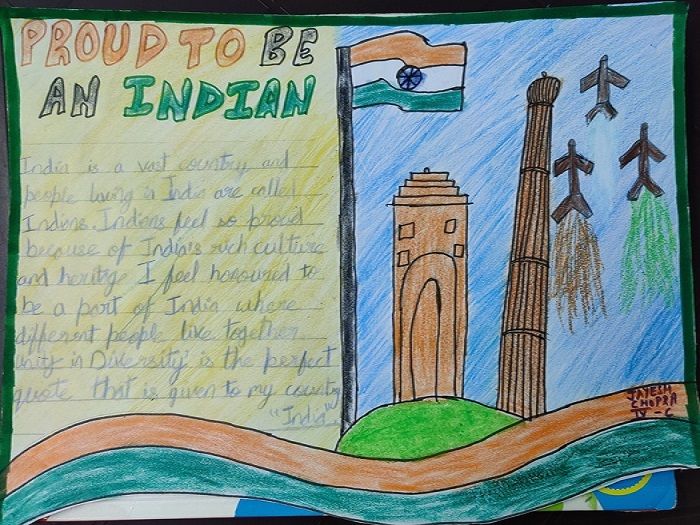 PROUD TO BE
AN INDIAN
India is a vast country and
people living in India are called
Indians. Indians feel so proud
because of India's rich culture
and heritge I feel honoured to
be a part of India where
different people live together
'Unity in Diversity' is the perfect
quote that is given to my country
"India".
JAYESH
CHOPRA
IV - C